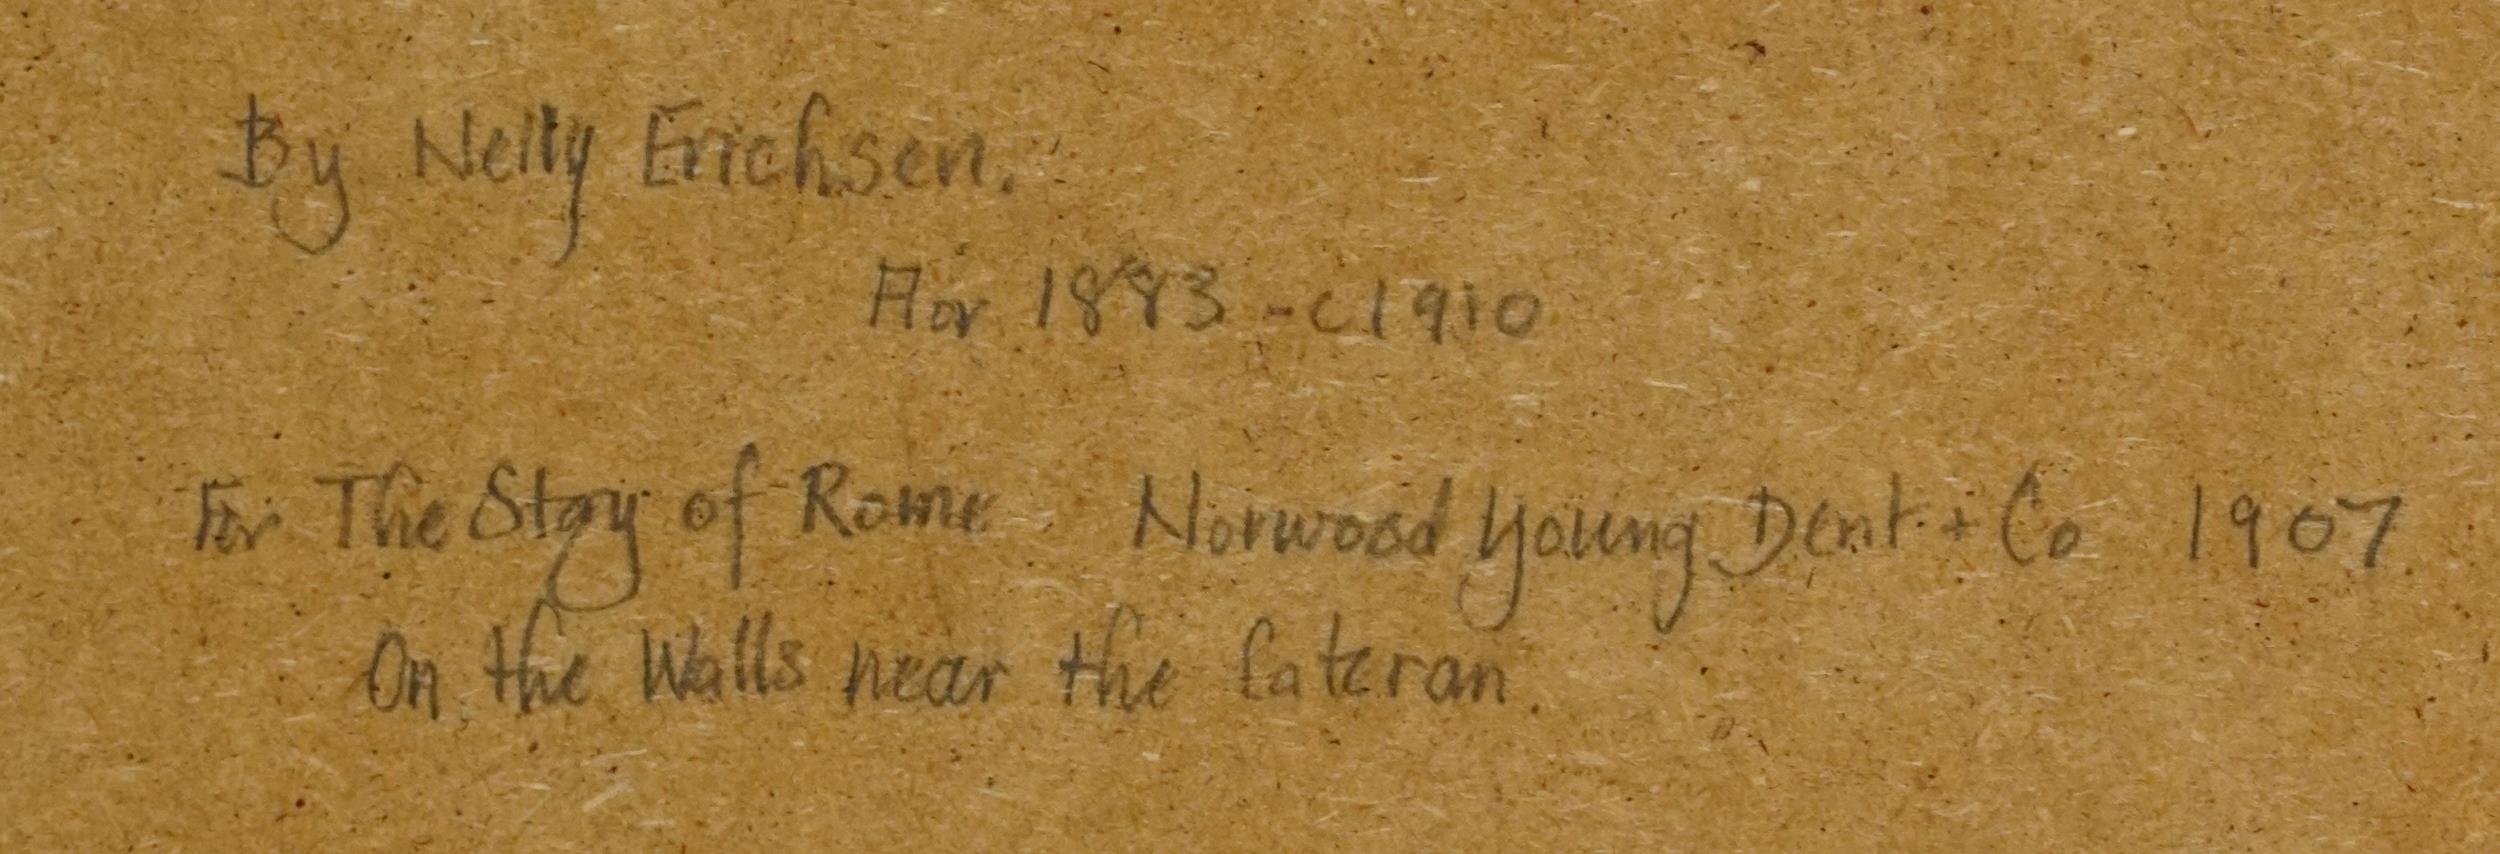 By Nelly Erichsen.
Flor 1883 - c1910
For The Story of Rome Norwood Young Dent + Co 1907
On the Walls near the Lateran.